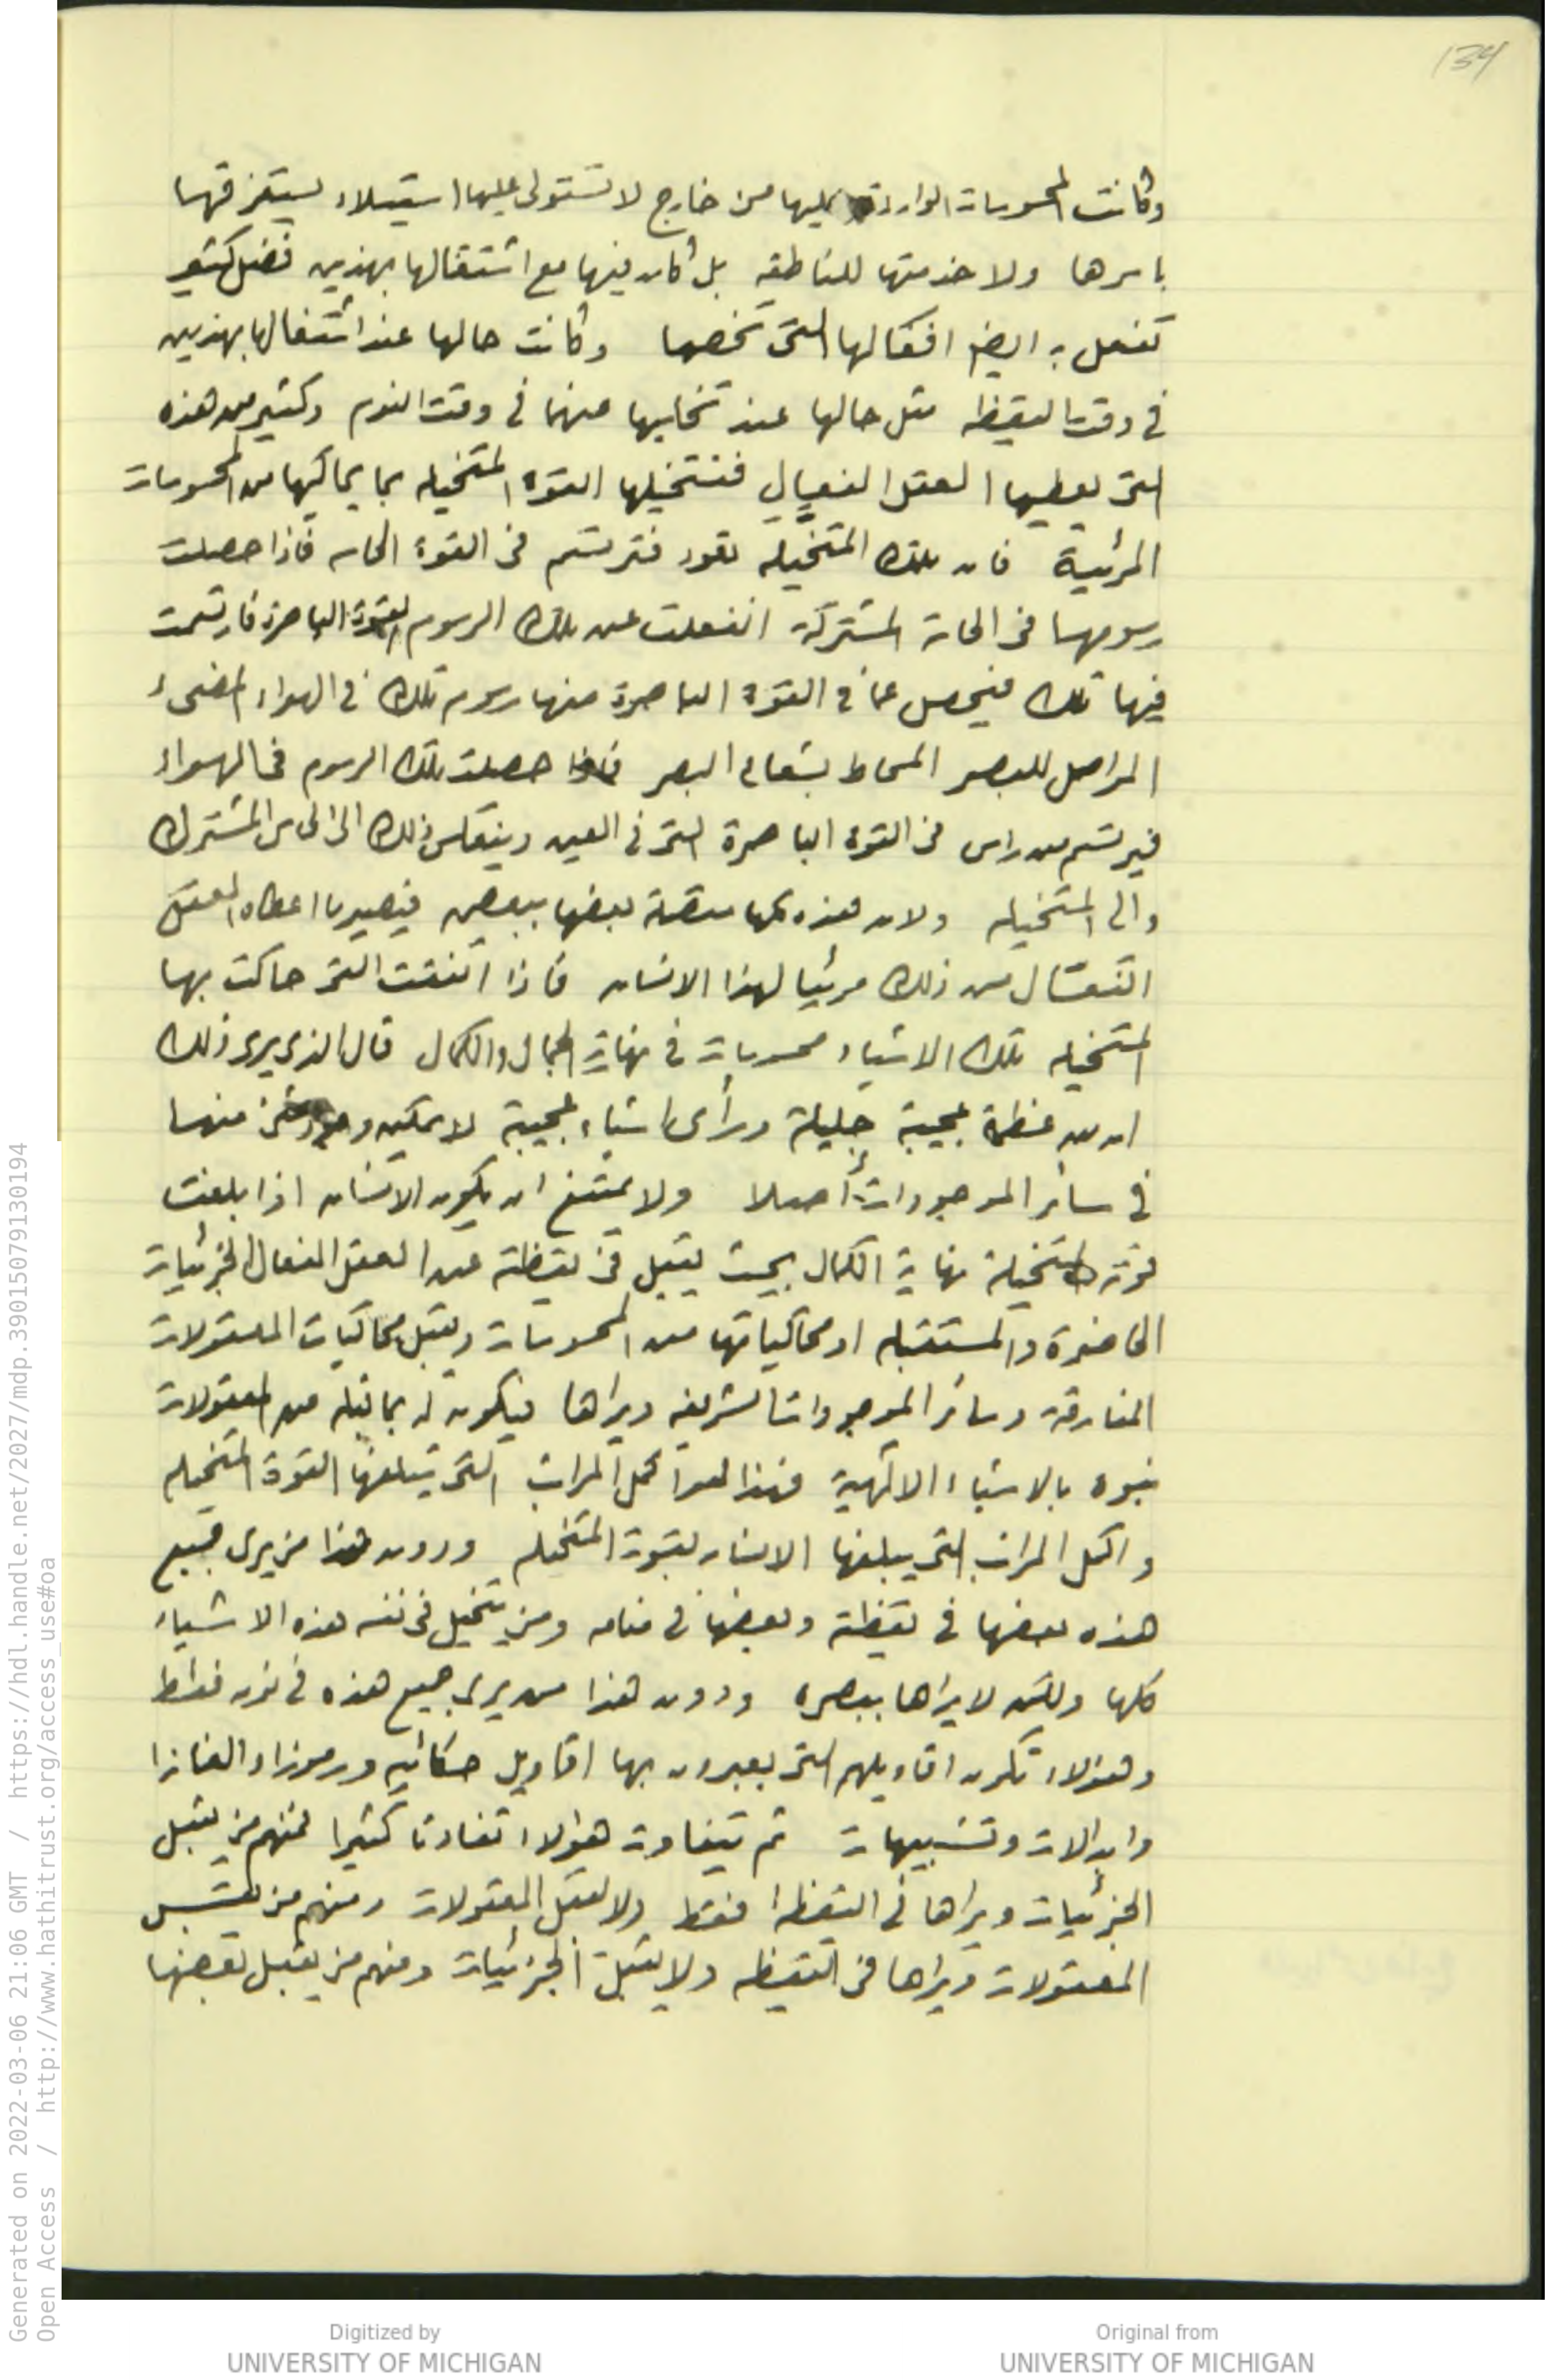 134
وكانت المحسوسات الواردة عليها من خارج لا تستولى عليها استيلاء يستغرقها
باسرها ولا خدمتها للناطقه بل كان فيها مع اشتغالها بهذين فضل كثير
تفعل به ايضا افعالها التى تخصها وكانت حالها عند اشتغالها بهذين
فى وقت اليقظه مثل حالها عند تخليها عنهما فى وقت النوم وكثير من هذه
التى يعطيها العقل الفعال فتتخيلها القوة المتخيله بما يحاكيها من المحسوسات
المرئية فان تلك المتخيله تعود فترتسم فى القوة الحاسه فاذا حصلت
رسومها فى الحاسة المشتركة انفعلت عن تلك الرسوم القوة الباصرة فارتسمت
فيها تلك فيحصل عما فى القوة الباصرة منها رسوم تلك فى الهواء المضىء
المواصل للبصر المحاط بشعاع البصر فاذا حصلت تلك الرسوم فى الهواء
فيرتسم من راس فى القوة الباصرة التى فى العين وينعكس ذلك الى الحاس المشترك
والى المتخيله ولان هذه كلها متصلة بعضها ببعض فيصير ما اعطاه العقل
الفعال من ذلك مرئيا لهذا الانسان فاذا اتفقت التى حاكت بها
المتخيله تلك الاشياء محسوسات فى نهاية الجمال والكمال قال الذى يرى ذلك
ان عظمة عجيبة جليلة ورأى اشياء عجيبة لا يمكن وجود شئ منها
فى سائر الموجودات أصلا ولا يمتنع ان يكون الانسان اذا بلغت
قوته المتخيلة نهاية الكمال بحيث يقبل فى يقظته عن العقل الفعال الجزئيات
الحاضرة والمستقبله او محاكياتها من المحسوسات ويقبل محاكيات المعقولات
المفارقة وسائر الموجودات الشريفه ويراها فيكون له بما قبله من المعقولات
نبوه بالاشياء الالهية فهذا هو اكمل المراتب التى تبلغها القوة المتخيله
واكمل المراتب التى يبلغها الانسان بقوته المتخيله ودون هذا من يرى جميع
هذه بعضها فى يقظته وبعضها فى منامه ومن يتخيل فى نفسه هذه الاشياء
كلها ولكن لا يراها ببصره ودون هذا من يرى جميع هذه فى نومه فقط
وهؤلاء تكون اقاويلهم التى يعبرون بها اقاويل حكائيه ورموزا والغازا
وابدالات وتشبيهات ثم يتفاوت هؤلاء تفاوتا كثيرا فمنهم من يقبل
الجزئيات ويراها فى اليقظه فقط ولا يقبل المعقولات ومنهم من يقبل
المعقولات ويراها فى اليقظه ولا يقبل الجزئيات ومنهم من يقبل بعضها
Generated on 2022-03-06 21:06 GMT / https://hdl.handle.net/2027/mdp.39015079130194
Open Access / http://www.hathitrust.org/access_use#oa
Digitized by
UNIVERSITY OF MICHIGAN
Original from
UNIVERSITY OF MICHIGAN